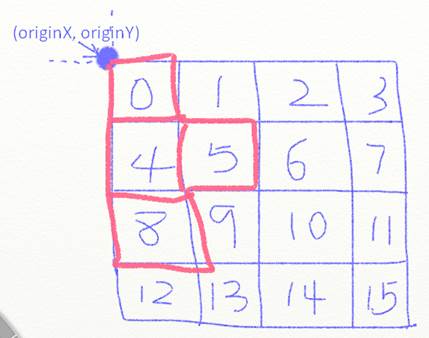 (originX, originY)
0 1 2 3
4 5 6 7
8 9 10 11
12 13 14 15